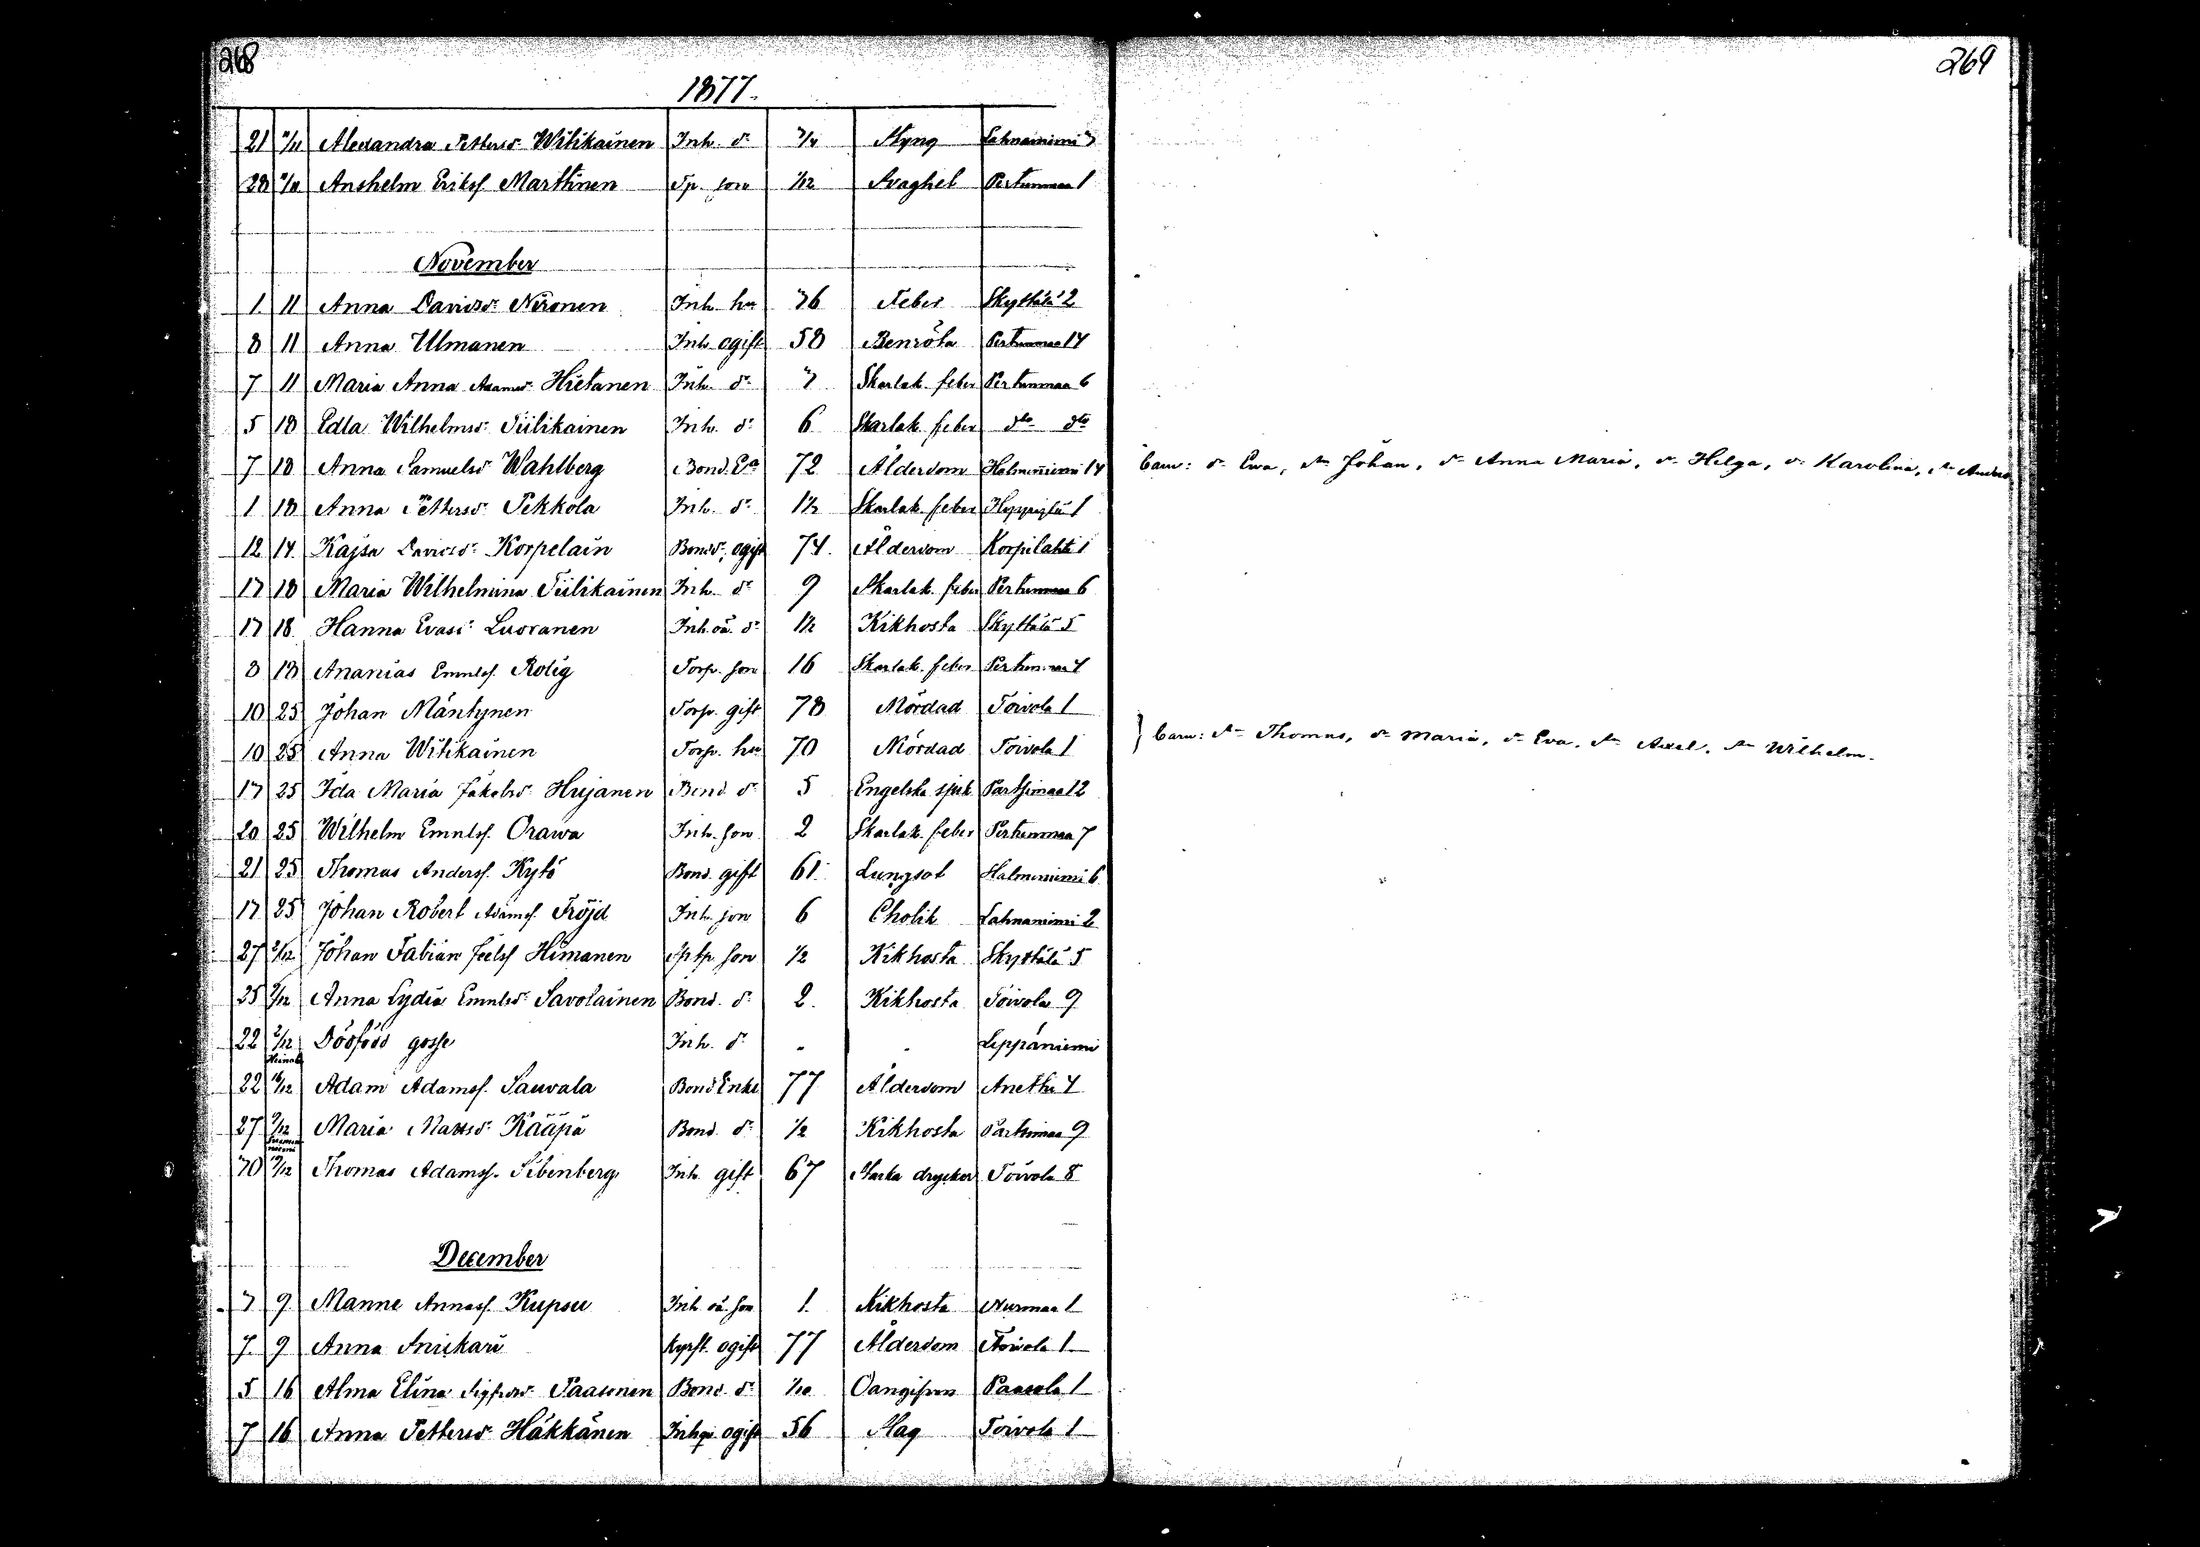 268
1877.
21 4/11 Alexandra Pettersdr Witikainen Inh. dr 3/4 Styng Lahnaniemi 7
28 4/11 Anshelm Eriks. Marttinen Tp. son 1/12 Svaghet Pertunmaa 1
November
1 11 Anna Davidsdr Nironen Inh. hu 76 Feber Skyttälä 2
8 11 Anna Ulmanen Inh. ogift 58 Benröta Pertunmaa 14
7 11 Maria Anna Adamsdr Hietanen Inh. dr 7 Skarlak. feber Pertunmaa 6
5 18 Edla Wilhelmsdr Tiilikainen Inh. dr 6 Skarlak. feber dto dto
7 18 Anna Samuelsdr Wahlberg Bond. Ea 72 Ålderdom Halmeniemi 14
1 18 Anna Pettersdr Pekkola Inh. dr 1½ Skarlak. feber 1
12 14 Kajsa Davidsdr Korpelain Bonddr. ogift 74. Ålderdom Korpilahti 1
17 18 Maria Wilhelmina Tiilikainen Inh. dr 9 Skarlak. feber Pertunmaa 6
17 18 Hanna Evasdr Luoranen Inh. oä. dr 1½ Kikhosta Skyttälä 5
8 18 Ananias Emnls. Rolig Torp. son 16 Skarlak. feber Pertunmaa 4
10 25 Johan Mäntynen Torp. gift 78 Mördad Toivola 1
10 25 Anna Witikainen Torp. hu 70 Mördad Toivola 1
17 25 Ida Maria Jakobsdr Hujanen Bond. dr 5 Engelska sjuk. Partsimaa 12
20 25 Wilhelm Emnls. Orawa Inh. son 2 Skarlak. feber Pertunmaa 7
21 25 Thomas Anders. Kytö Bond. gift 61. Lungsot Halmeniemi 6
17 25 Johan Robert Adams. Fröjd Inh. son 6 Cholik Lahnaniemi 2
27 2/12 Johan Fabian Himanen son ½ Kikhosta Skyttälä 5
25 2/12 Anna Lydia Emnlsdr Savolainen Bond. dr 2. Kikhosta Toivola 9
22 2/12 Dödfödd gosse Inh. dr - - Leppäniemi
Heinola
22 16/12 Adam Adams. Sauvala Bond Enkl 77 Ålderdom Anetu 4
27 9/12 Maria Matsdr Kääpä Bond. dr ½ Kikhosta Partsimaa 9
10/12 Thomas Adams. Sibenberg Inh. gift 67 Starka drycker Toivola 8
December
7 9 Manne Annas. Kupsu Inh. oä. son 1. Kikhosta Nurmaa 1
7 9 Anna Kyrkf. ogift 77 Ålderdom Toivola 1
5 16 Alma Elina Sigfrsdr Paasonen Bond. dr 1/10 Oangifven Paasola 1
7 16 Anna Pettersdr Häkkänen Inhqv. ogift 56 Slag Toivola 1
269
Barn: dr Eva, sn Johan, dr Anna Maria, dr Helga, dr Karolina, sn Anders
} Barn: sn Thomas, dr Maria, dr Eva, sn Axel, sn Wilhelm.